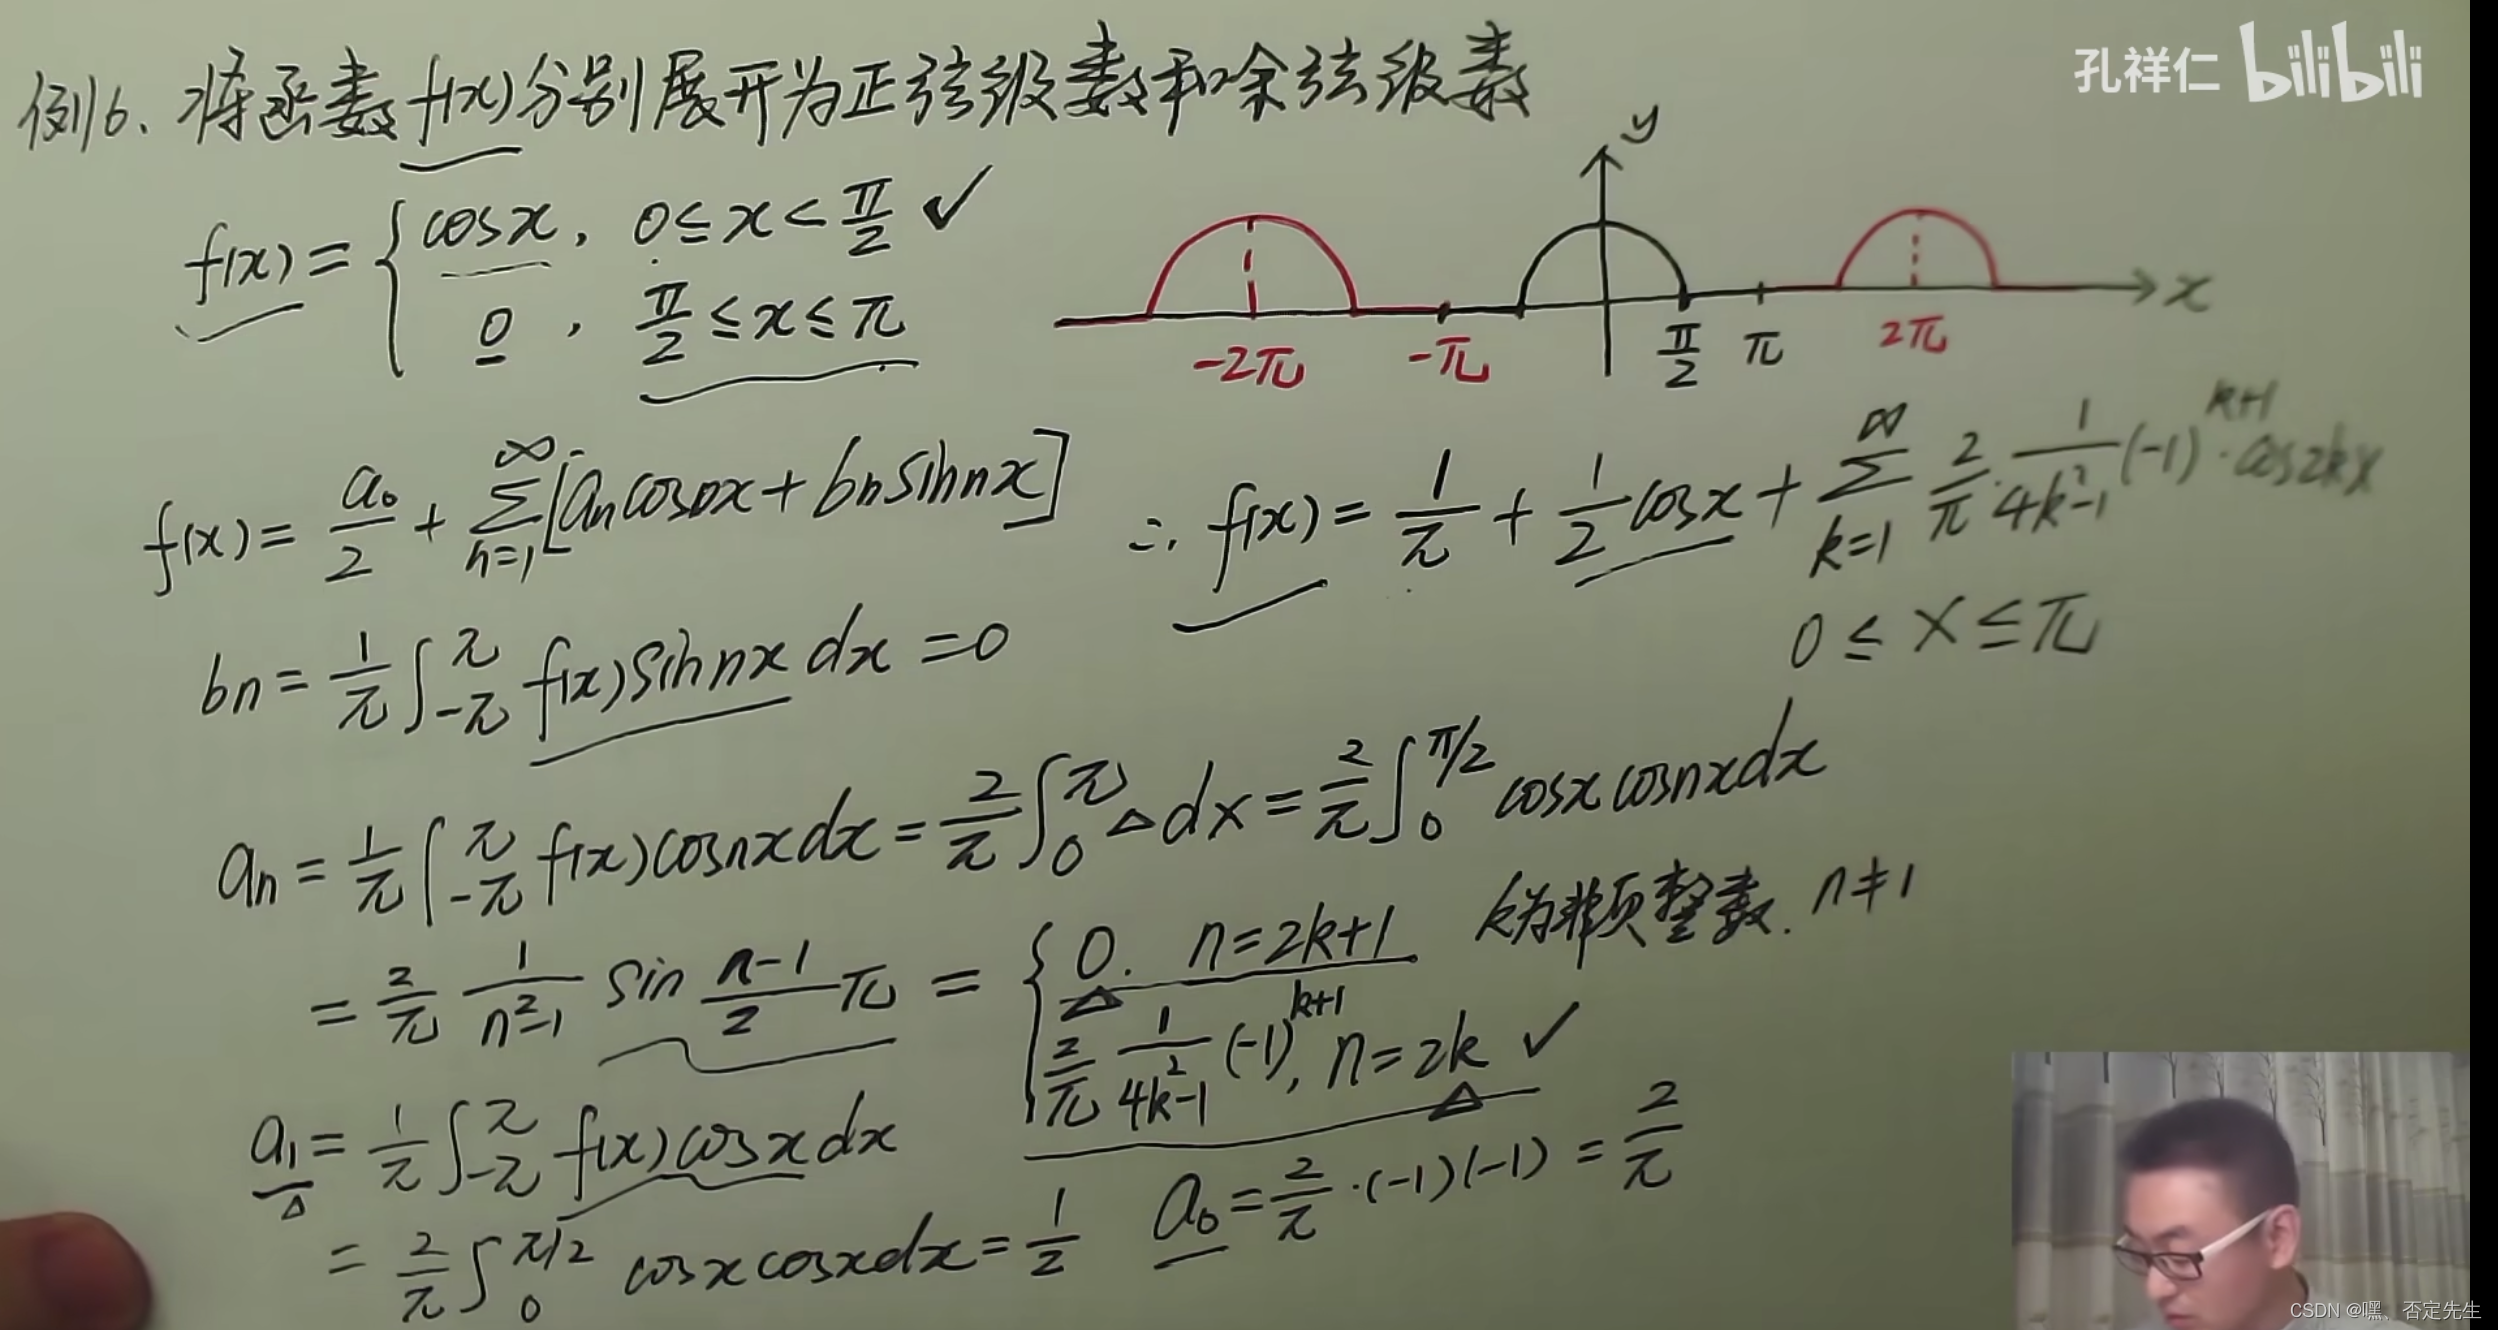 孔祥仁 bilibili
例6、将函数f(x)分别展开为正弦级数和余弦级数
f(x) = { cosx, 0≤x<π/2 ✓
0, π/2≤x≤π
y
x
-2π -π π/2 π 2π
f(x) = a₀/2 + ∑_{n=1}^{∞} [aₙcosnx + bₙsinnx]
∴ f(x) = 1/π + 1/2 cosx + ∑_{k=1}^{∞} 2/π · 1/(4k²-1) (-1)^{k+1} · cos2kx
0 ≤ x ≤ π
bn = 1/π ∫_{-π}^{π} f(x)sinnx dx = 0
an = 1/π ∫_{-π}^{π} f(x)cosnxdx = 2/π ∫_0^π △dx = 2/π ∫_0^{π/2} cosxcosnxdx
= 2/π 1/(n²-1) sin (n-1)/2 π = { 0. n=2k+1 k为非负整数. n≠1
2/π 1/(4k²-1) (-1)^{k+1}, n=2k ✓
a₁ = 1/π ∫_{-π}^{π} f(x)cosxdx
= 2/π ∫_0^{π/2} cosxcosxdx = 1/2
a₀ = 2/π · (-1)(-1) = 2/π
CSDN @嘿、否定先生